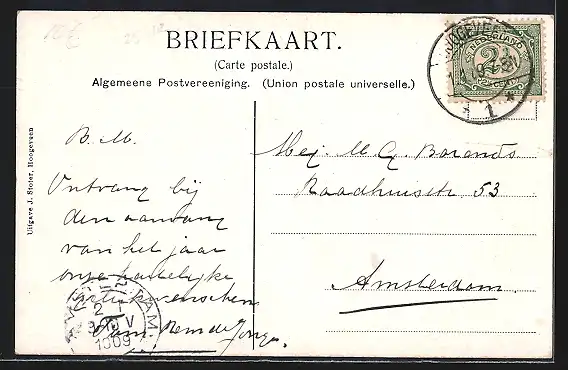 BRIEFKAART.
(Carte postale.)
Algemeene Postvereeniging. (Union postale universelle.)
Uitgave J. Stoter, Hoogeveen
NEDERLAND
2½
CENT
1
B. M.
Ontvang bij
den aanvang
van het jaar
onze hartelijke
gelukwenschen
Mej. M. G. Barends
Raadhuisstr 53
Amsterdam.
AMSTERDAM
2 1
9-10 V
1909